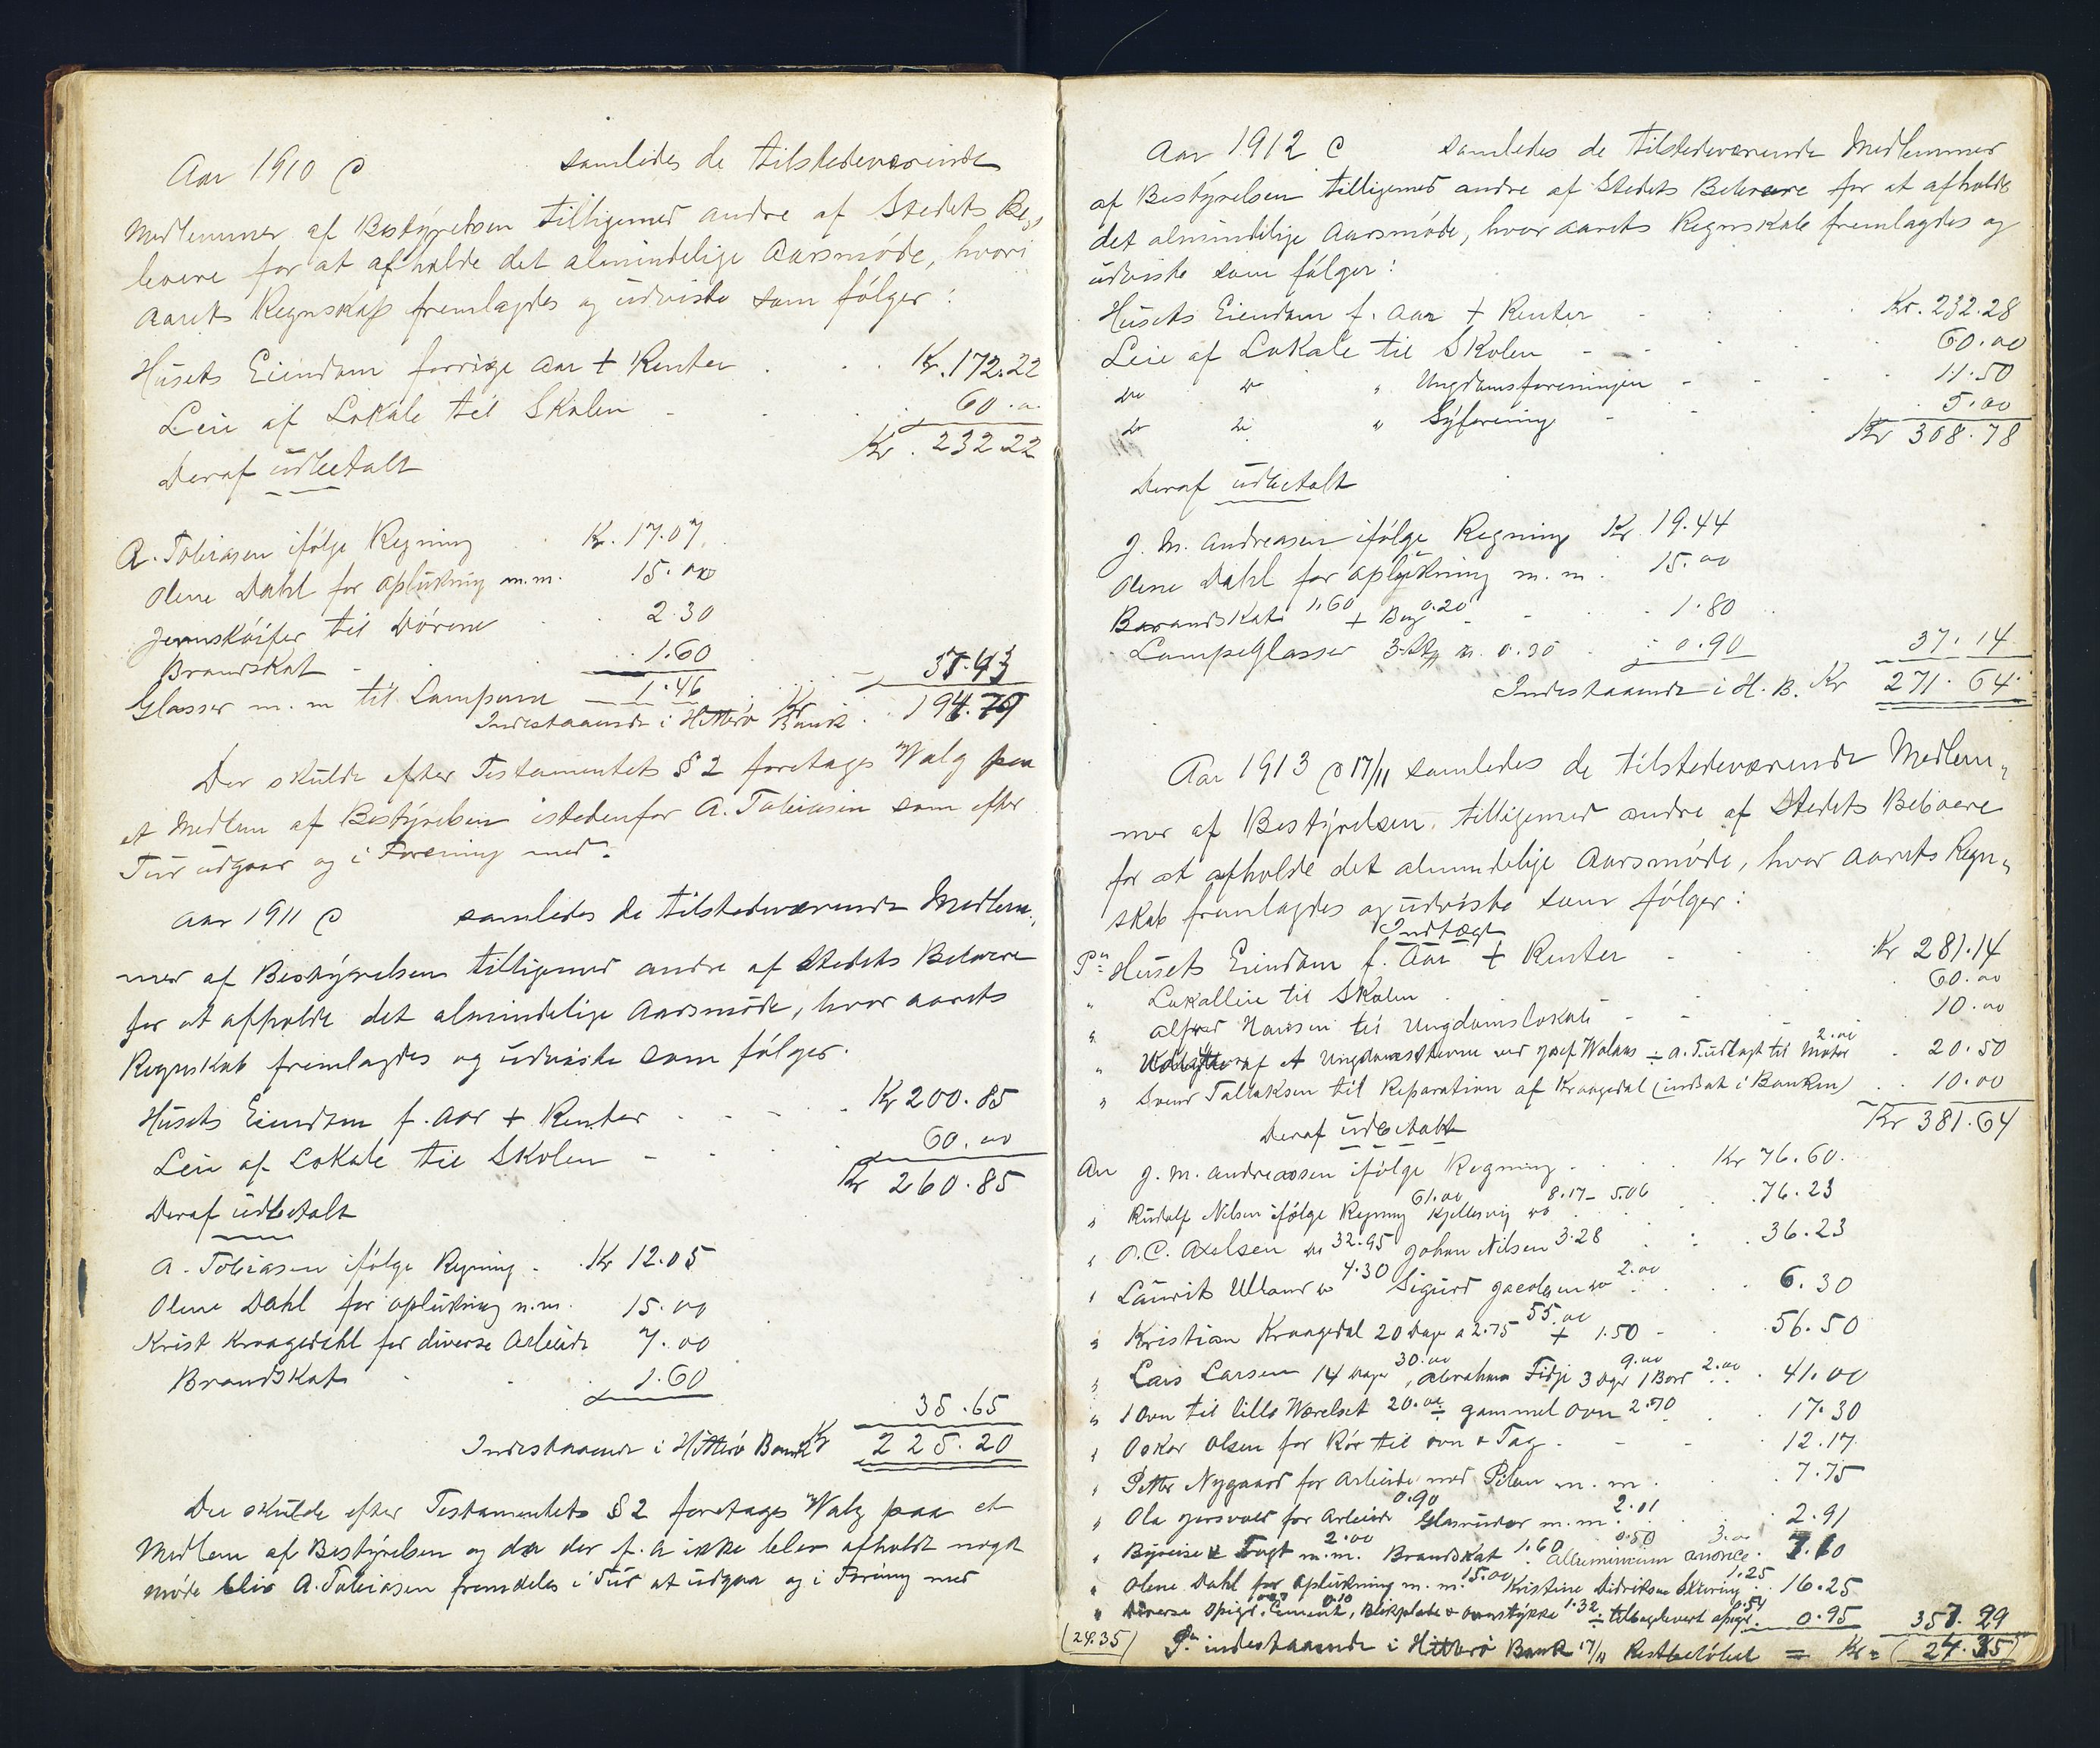 Aar 1910 d samledes de tilstedeværende
Medlemmer af Bestyrelsen tilligemed andre af Stedets Be„
boere for at afholde det almindelige Aarsmøde, hvori
Aarets Regnskap fremlagdes og udviste som følger:
Husets Eiendom forrige Aar + Renter Kr. 172.22
Leie af Lokale til Skolen - 60.00
Kr. 232.22
Deraf udbetalt
A. Tobiasen ifølge Regning Kr. 17.07
Olene Dahl for oplukning m.m. 15.00
Jernskoifer til Dörene 2.30
Brandskat - 1.60
Glasser m. m til Lamperne 1.46 37.43
Indestaaende i Hitterö Bank Kr 194.79
Der skulde efter Testamentets § 2 foretages Walg paa
et Medlem af Bestyrelsen istedenfor A. Tobiasen som efter
Tur udgaar og i Forening med.
Aar 1911 d samledes de tilstedeværende Medlem„
mer af Bestyrelsen tilligemed andre af Stedets Beboere
for at afholde det almindelige Aarsmøde, hvor aarets
Regnskab fremlagdes og udviste som følger.
Husets Eiendom f. Aar + Renter Kr 200.85
Leie af Lokale til Skolen - 60.00
Kr 260.85
Deraf udbetalt
A. Tobiasen ifølge Regning - Kr 12.05
Olene Dahl for oplukning m.m. 15.00
Krist Kraagedahl for diverse Arbeide 7.00
Brandskat 1.60
35.65
Indestaaende i Hitterö Bank Kr 225.20
Der skulde efter Testamentets § 2 foretages Walg paa et
Medlem af Bestyrelsen og da der f. A ikke blev afholdt noget
Møde blir A. Tobiasen fremdeles i Tur at udgaa og i Forening med
Aar 1912 d samledes de tilstedeværende Medlemmer
af Bestyrelsen tilligemed andre af Stedets Beboere for at afholde
det almindelige Aarsmøde, hvor aarets Regnskab fremlagdes og
udviste som følger:
Husets Eiendom f. Aar + Renter - Kr. 232.28
Leie af Lokale til Skolen - 60.00
do do „ Ungdomsforeningen - 11.50
do do „ Syforening - 5.00
Kr 308.78
Deraf udbetalt
J. M. Andreasen ifølge Regning Kr. 19.44
Olene Dahl for oplukning m. m. 15.00
Brandskat 1.60 + 0.20 - 1.80
Lampeglasser 3 a. 0.30 0.90 37.14
Indestaaende i H. B. Kr 271.64
Aar 1913 d 17/11 samledes de tilstedeværende Medlem„
mer af Bestyrelsen, tilligemed andre af Stedets Beboere
for at afholde det almindelige Aarsmøde, hvor aarets Regn„
skab fremlagdes og udviste som følger:
Indtægt
Pr Husets Eiendom f. Aar + Renter - Kr 281.14
„ Lokalleie til Skolen - 60.00
„ Alfred Hansen til Ungdomslokale - 10.00
„ af et Ungdomsstevne ved Josef Wolans ÷ A. T. udlagt til Motor 2.00 20.50
„ Svend Tallaksen til Reparation af Kraagedal (indsat i Banken) 10.00
Kr 381.64
Deraf udbetalt
An J. M. Andreassen ifølge Regning - Kr 76.60.
„ Rudolf Nilsen ifølge Regning 61.00 Kjellesvig do 8.17 - 5.06 76.23
„ O. C. Axelsen do 32.95 Johan Nilsen 3.28 36.23
„ Laurits Ulland do 4.30 Sigurd Jacobsen do 2.00 6.30
„ Kristian Kraagedal 20 Dage a 2.75 55.00 + 1.50 - 56.50
„ Lars Larsen 14 Dage 30.00, Abraham Fidje 3 Dage 9.00 1 Bord 2.00 41.00
„ 1 Ovn til lille Wærelset 20.00 ÷ gammel Ovn 2.70 17.30
„ Oskar Olsen for Rör til ovn & Tag - 12.17
„ Petter Nygaard for Arbeide med Pelen m. m. 7.75
„ Ola Gjersvold for Arbeide 0.90 Glasruder m. m. 2.01 2.91
„ Byreise & Fragt m. m. 2.00 Brandskat 1.60 Alluminium 0.50 Anonce 3.00 7.10
„ Olene Dahl for oplukning m. m. 15.00 Kristine Didriksen Skuring 1.25 16.25
„ Diverse Spiger, Cement, Blikplade & ovnstykke 1.32 ÷ tilbagelevert spiger 0.54 0.95 357.29
(24.35) Pr indestaaende i Hitterö Bank 17/11 Restbeløbet = Kr = (24.35)